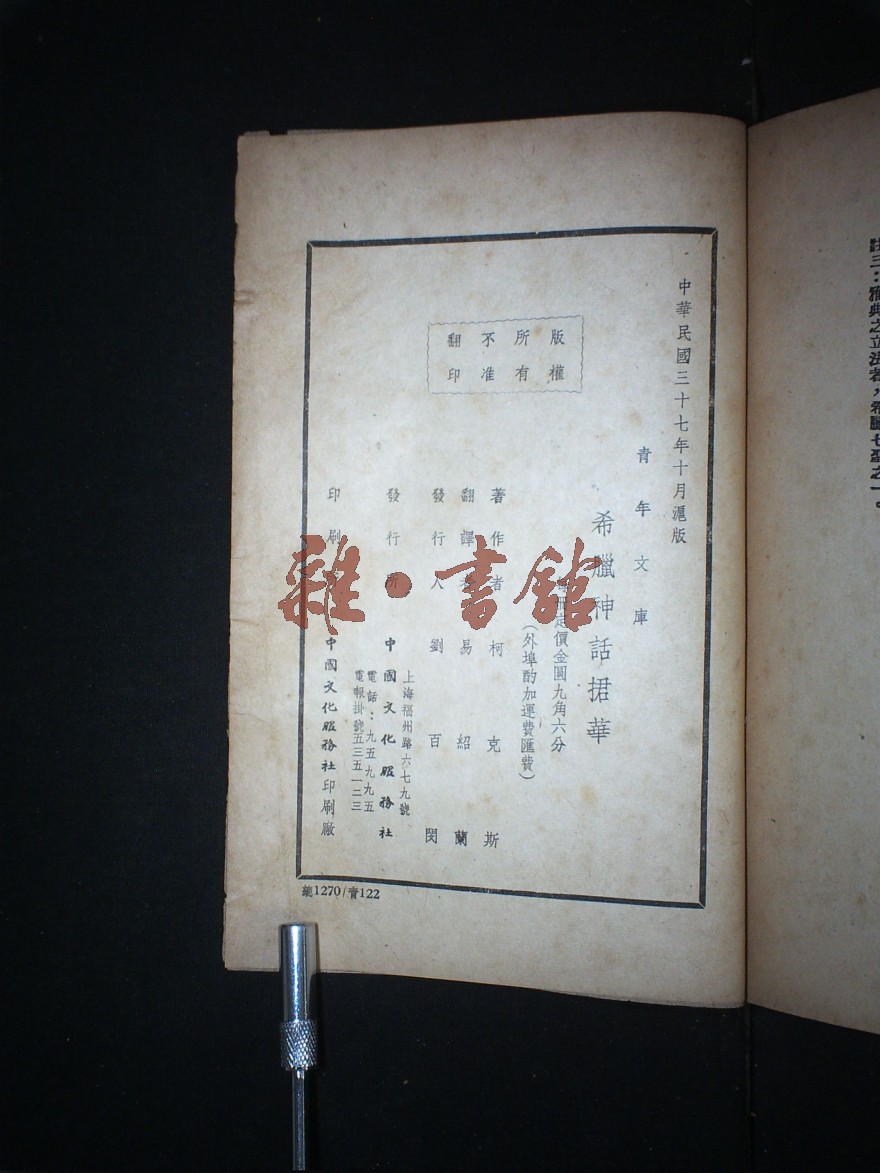 中華民國三十七年十月滬版
版權
所有
不准
翻印
青年文庫
希臘神話捃華
每冊定價金圓九角六分
(外埠酌加運費匯費)
著作者 柯克斯
翻譯者 易紹蘭
發行人 劉百閔
上海福州路六七九號
發行所 中國文化服務社
電話:九五九九五
電報掛號五三五一二三
印刷 中國文化服務社印刷廠
總1270/青122
雜·書館
註三:雅典之立法者,希臘七聖之一。